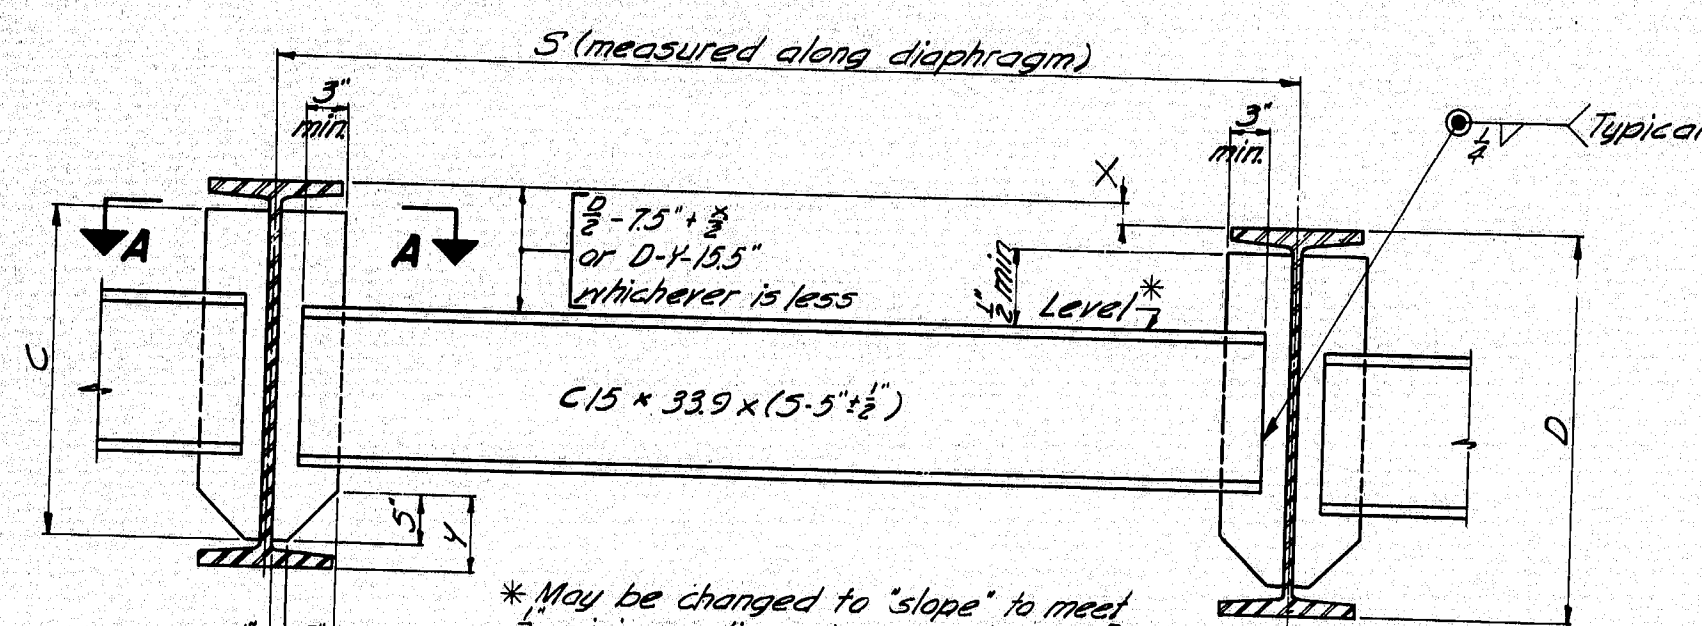 S (measured along diaphragm)
3"
min.
3"
min.
1/4
Typical
X
A
A
D/2 - 7.5" + x/2
or D-Y-15.5"
whichever is less
1/2" min
Level *
C
C15 × 33.9 × (S-5" ± 1/2")
D
5"
Y
* May be changed to "slope" to meet